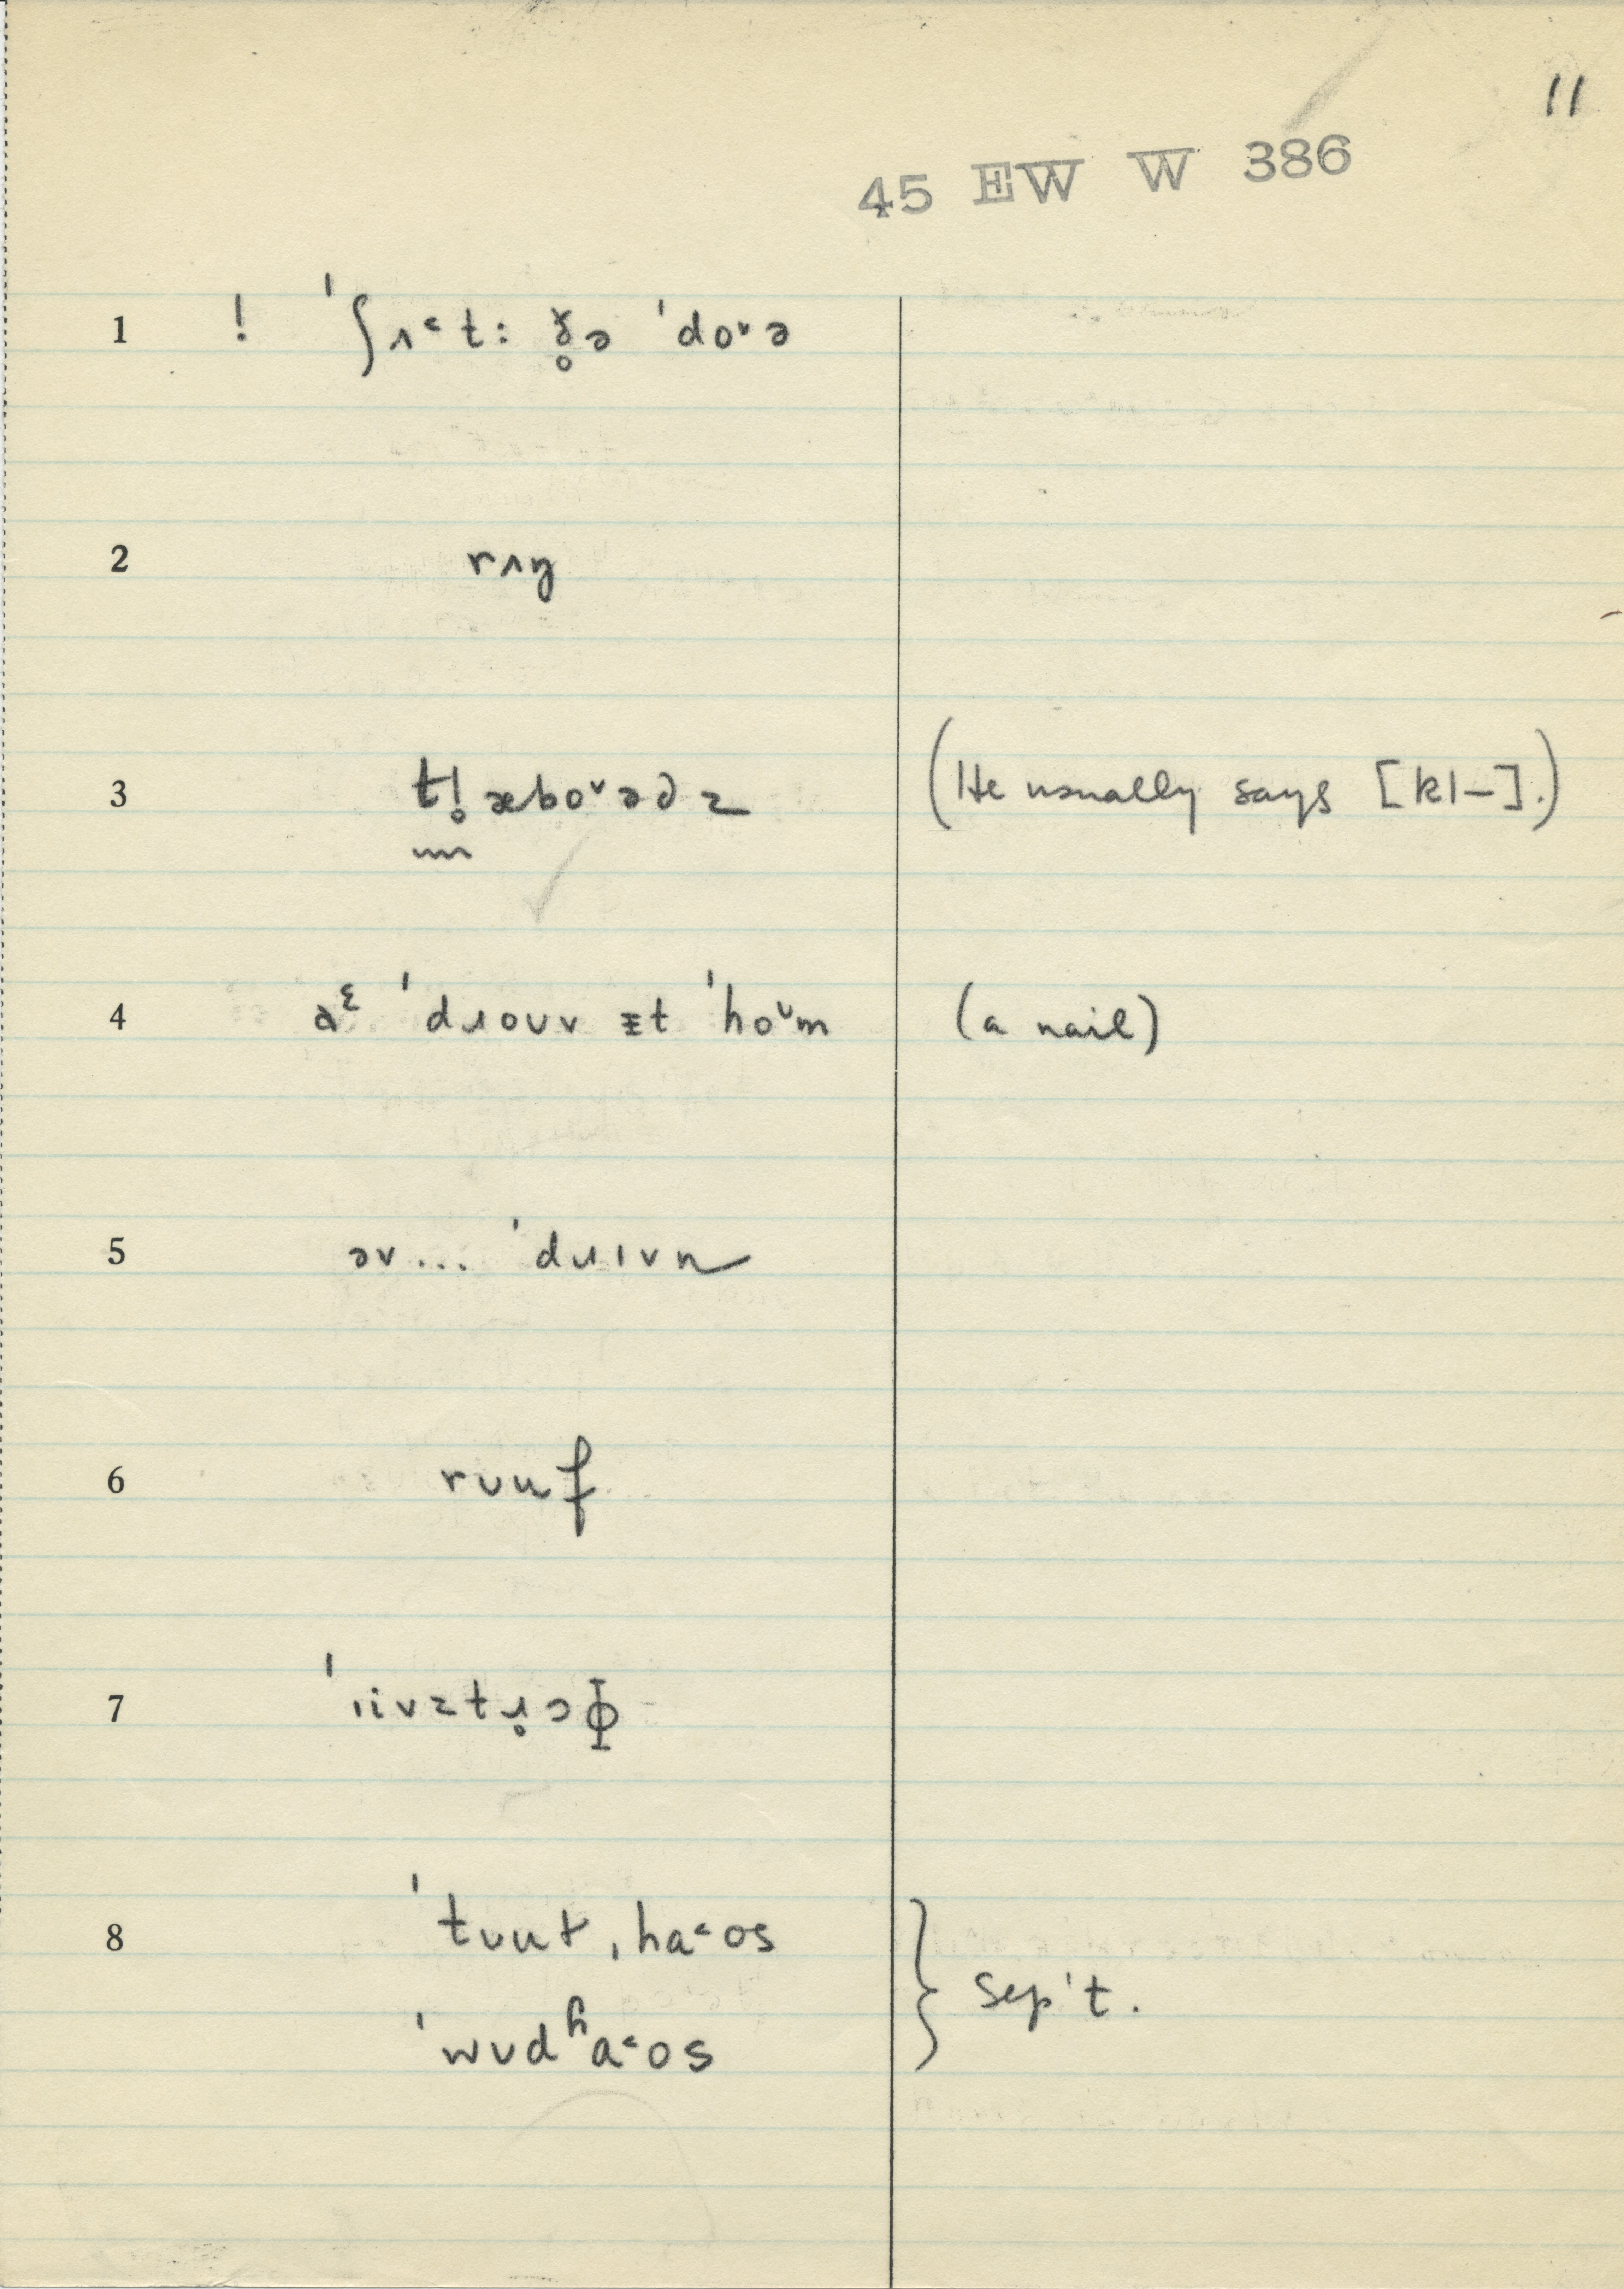 11
45 EW W 386
1 ! ˈʃʌ˂t: ð̥ə ˈdo˅ə
2 rʌŋ
3 tl̥æbo˅əd̬z (He usually says [kl–].)
4 əᵋ ˈdɹoʊv ɪt ˈho˅m (a nail)
5 əv... ˈdɹɪvn
6 rʊuf
7 ˈiivztɹ̥ɔɸ
8 ˈtʊut ˌha˂os
ˈwʊdʱa˂os } Sep't.